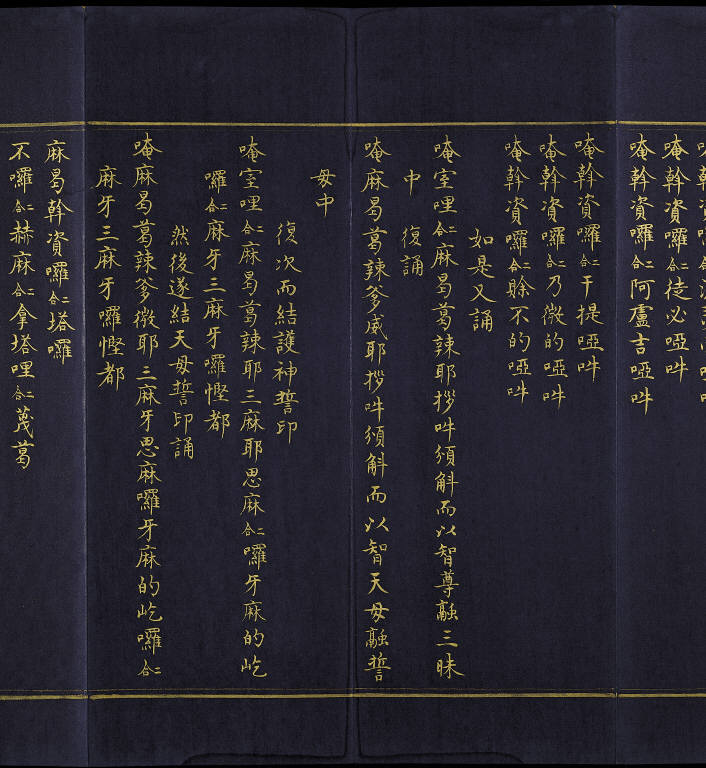 唵斡資囉合二徒必啞吽
唵斡資囉合二阿盧吉啞吽
唵斡資囉合二干提啞吽
唵斡資囉合二乃微的啞吽
唵斡資囉合二賒不的啞吽
如是又誦
唵室哩合二麻曷葛辣耶拶吽頒斛而以智尊融三昧
中　復誦
唵麻曷葛辣爹威耶拶吽頒斛而以智天母融誓
母中
復次而結護神誓印
唵室哩合二麻曷葛辣耶三麻耶思麻合二囉牙麻的屹
囉合二麻牙三麻牙囉慳都
然後遂結天母誓印誦
唵麻曷葛辣爹微耶三麻牙思麻囉牙麻的屹囉合二
麻牙三麻牙囉慳都
麻曷斡資囉合二塔囉
不囉合二赫麻合二拿塔哩合二蔑葛